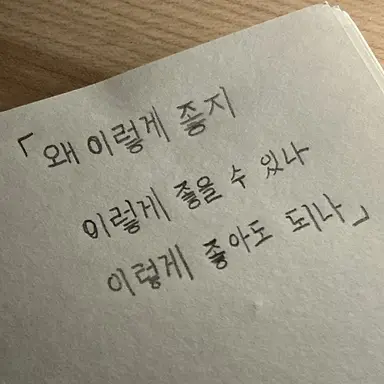 「왜 이렇게 좋지
이렇게 좋을 수 있나
이렇게 좋아도 되나」